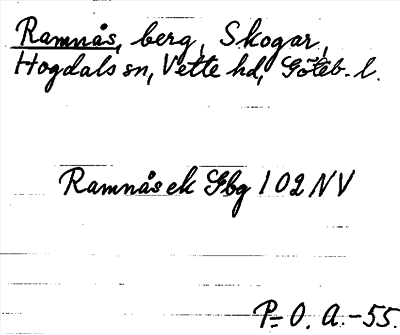 Ramnås, berg, Skogar,
Hogdals sn, Vette hd, Göteb. l.
Ramnås ek Gbg 102 NV
P-O. A.-55.